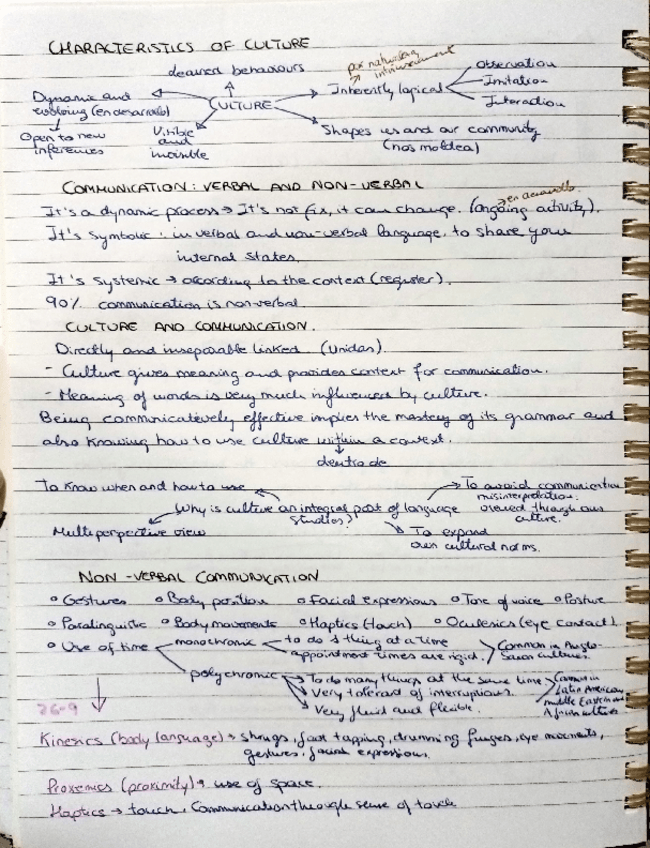 CHARACTERISTICS OF CULTURE
learned behaviours
por naturaleza
Dynamic and
evolving (en desarrollo)
CULTURE
Inherently logical
Observation
Imitation
Interaction
Open to new
inferences
Visible
and
invisible
Shapes us and our community
(nos moldea)
COMMUNICATION: VERBAL AND NON-VERBAL
en desarrollo
It's a dynamic process → It's not fix, it can change. (ongoing activity).
It's symbolic: in verbal and non-verbal language, to share your
internal states.
It's systemic → according to the context (register).
90% communication is nonverbal
CULTURE AND COMMUNICATION.
Directly and inseparable linked (Unidas).
- Culture gives meaning and provides context for communication.
- Meaning of words is very much influenced by culture.
Being communicatively effective implies the mastery of its grammar and
also knowing how to use culture within a context.
dentro de
To know when and how to use
To avoid communication
misinterpretation.
through our
culture.
Why is culture an integral part of language
studies?
Multiperpective view
To expand
own cultural norms.
NON-VERBAL COMMUNICATION
° Gestures ° Body position ° Facial expressions ° Tone of voice ° Posture
° Paralinguistic ° Body movements ° Haptics (touch) ° Oculesics (eye contact).
° Use of time
monochronic
to do 1 thing at a time
appointment times are rigid.
Common in Anglo-
Saxon cultures.
polychronic
To do many things at the same time
Very tolerant of interruptions.
Very fluid and flexible.
Common in
Latin American,
middle Eastern and
African cultures
26-9
Kinesics (body language) → shrugs, foot tapping, drumming fingers, eye movements,
gestures, facial expressions.
Proxemics (proximity) → use of space.
Haptics → touch. Communication through sense of touch